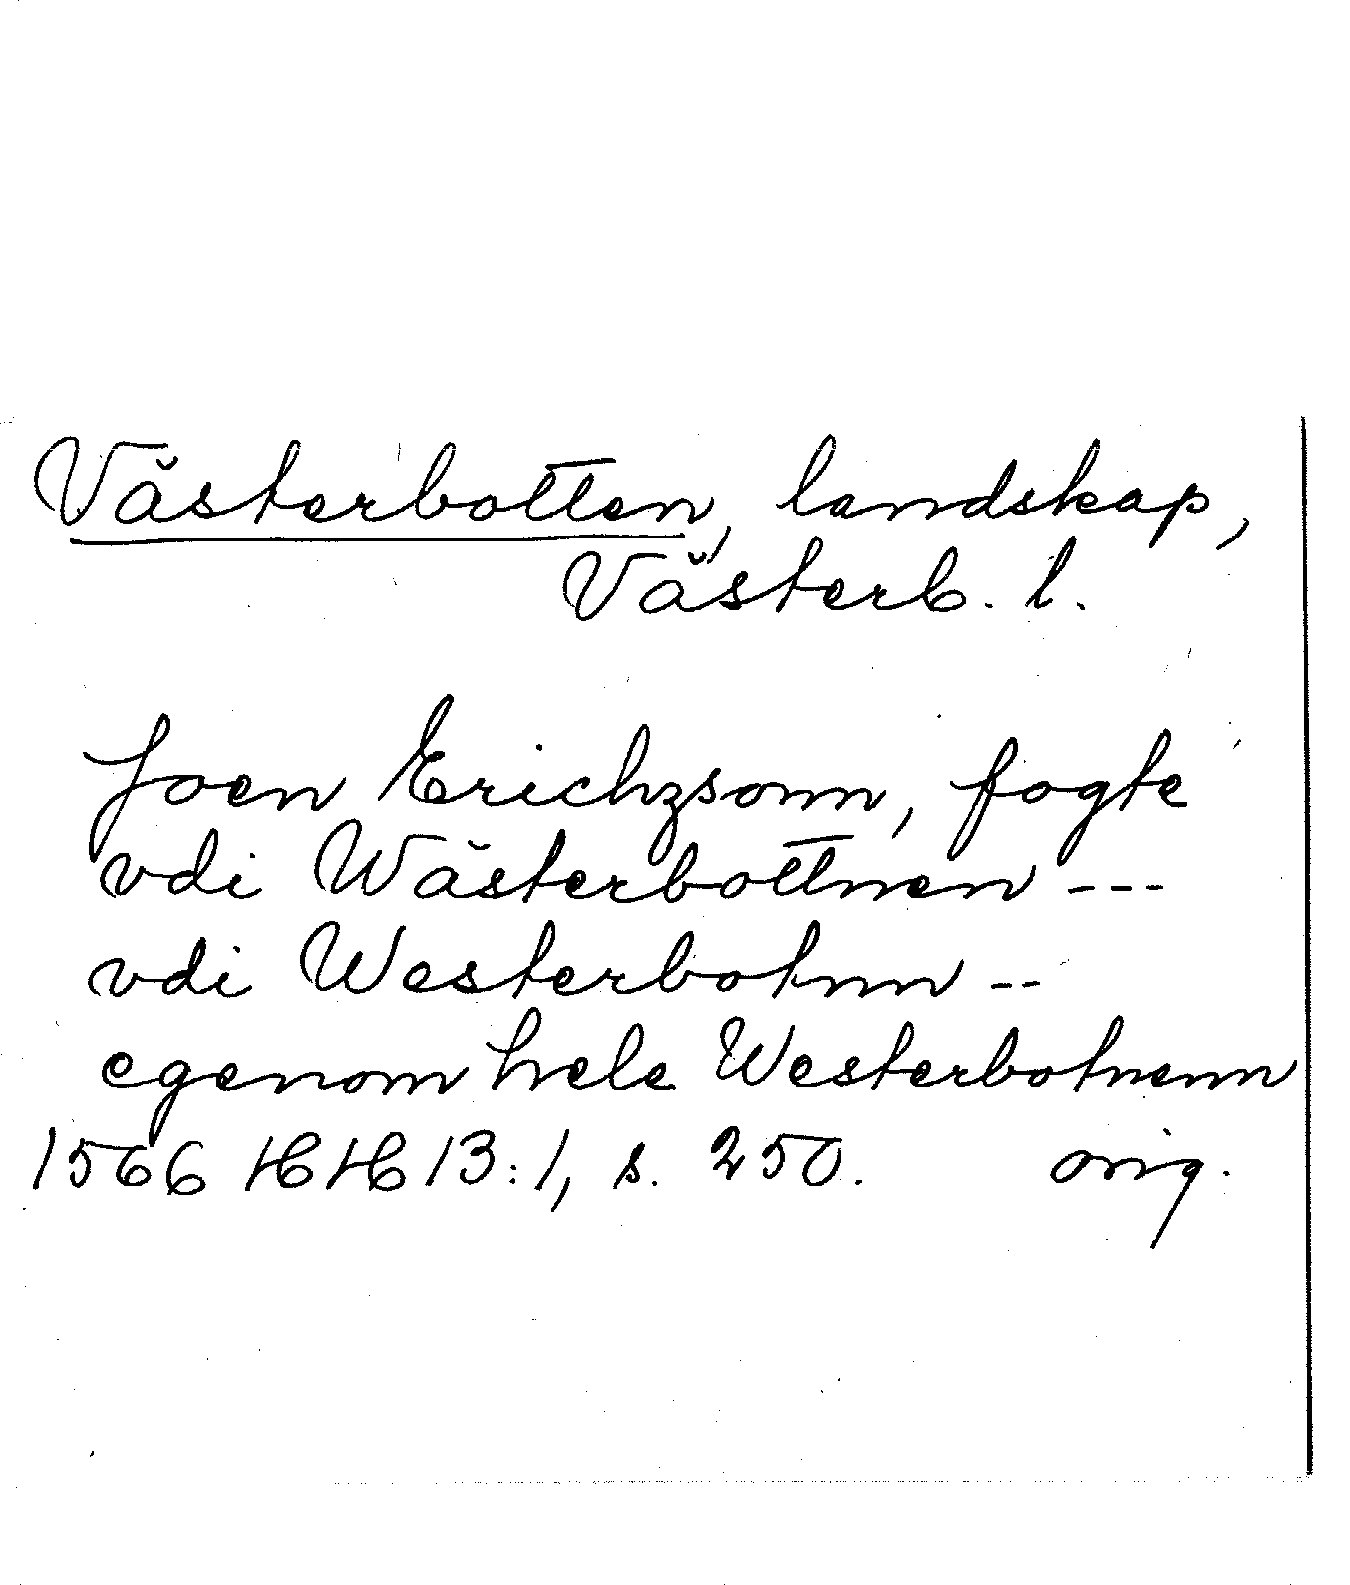 Västerbotten, landskap,
Västerb. l.
Joen Erichzsonn, fogte
vdi Wästerbottnen ---
vdi Westerbotnn --
egenom hele Westerbotnenn
1566 HH 13:1, s. 250. orig.